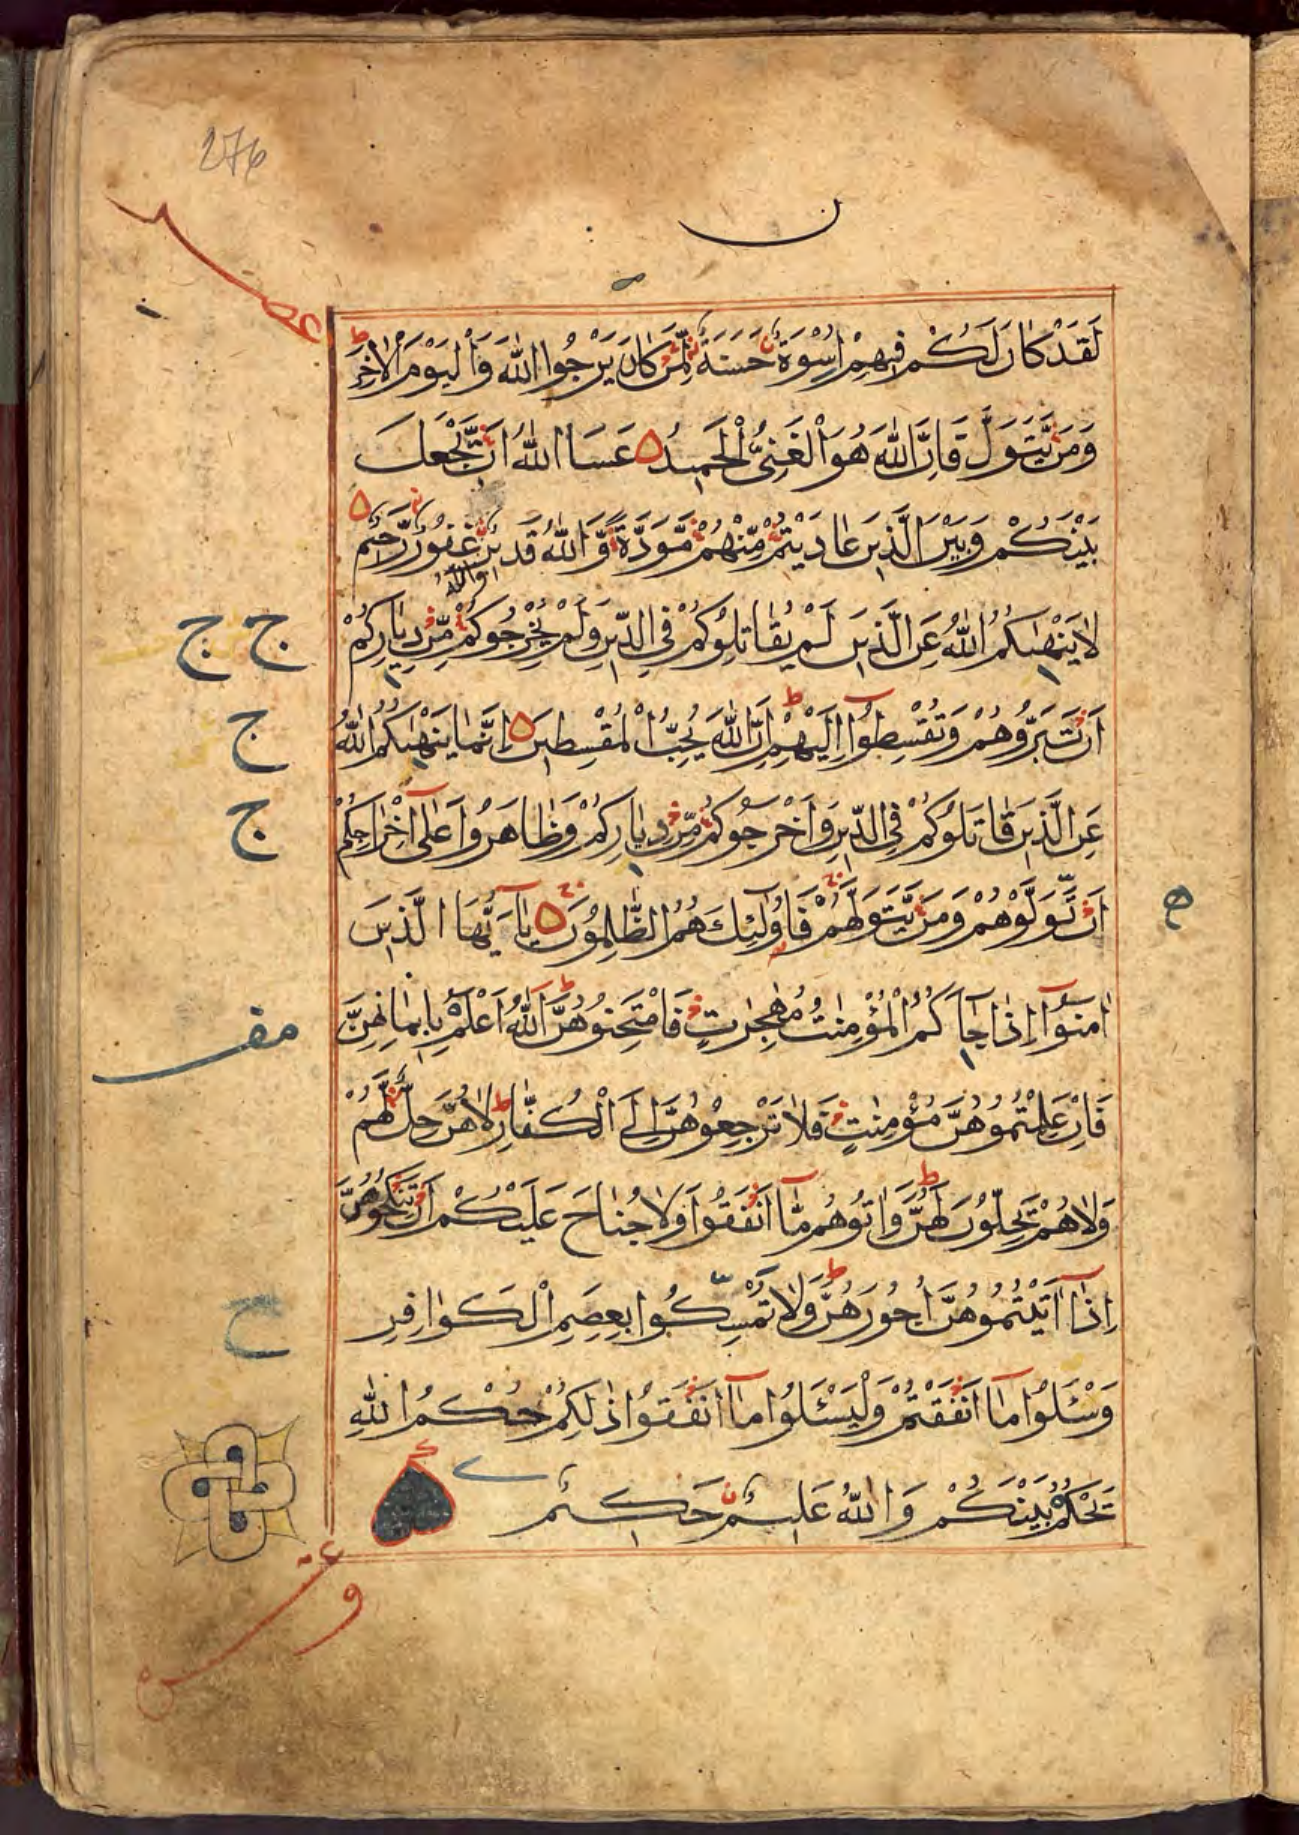 276
ن
لَقَدْ كَانَ لَكُمْ فِيهِمْ اُسْوَةٌ حَسَنَةٌ لِّمَنْ كَانَ يَرْجُوا اللّٰهَ وَالْيَوْمَ الْاٰخِرَ ط
وَمَنْ يَّتَوَلَّ فَاِنَّ اللّٰهَ هُوَ الْغَنِىُّ الْحَمِيدُ عَسَا اللّٰهُ اَنْ يَّجْعَلَ
بَيْنَكُمْ وَبَيْنَ الَّذِينَ عَادَيْتُمْ مِّنْهُمْ مَّوَدَّةً وَّاللّٰهُ قَدِيرٌ غَفُورٌ رَّحِيمٌ
وَاللّٰهُ
لَا يَنْهٰىكُمُ اللّٰهُ عَنِ الَّذِينَ لَمْ يُقَاتِلُوكُمْ فِى الدِّينِ وَلَمْ يُخْرِجُوكُمْ مِّنْ دِيَارِكُمْ
ج ج
اَنْ تَبَرُّوهُمْ وَتُقْسِطُوٓا اِلَيْهِمْ ط اِنَّ اللّٰهَ يُحِبُّ الْمُقْسِطِينَ اِنَّمَا يَنْهٰىكُمُ اللّٰهُ
ج
عَنِ الَّذِينَ قَاتَلُوكُمْ فِى الدِّينِ وَاَخْرَجُوكُمْ مِّنْ دِيَارِكُمْ وَظَاهَرُوا عَلٰٓى اِخْرَاجِكُمْ
ج
اَنْ تَوَلَّوْهُمْ وَمَنْ يَّتَوَلَّهُمْ فَاُولٰٓئِكَ هُمُ الظّٰلِمُونَ يَآ اَيُّهَا الَّذِينَ
اٰمَنُوٓا اِذَا جَآكُمُ الْمُؤْمِنٰتُ مُهٰجِرٰتٍ فَامْتَحِنُوهُنَّ ط اَللّٰهُ اَعْلَمُ بِاِيمَانِهِنَّ
فَاِنْ عَلِمْتُمُوهُنَّ مُؤْمِنٰتٍ فَلَا تَرْجِعُوهُنَّ اِلَى الْكُفَّارِ ط لَاهُنَّ حِلٌّ لَّهُمْ
وَلَاهُمْ يَحِلُّونَ لَهُنَّ ط وَاٰتُوهُمْ مَّآ اَنْفَقُوا وَلَا جُنَاحَ عَلَيْكُمْ اَنْ تَنْكِحُوهُنَّ
اِذَآ اٰتَيْتُمُوهُنَّ اُجُورَهُنَّ ط وَلَا تُمْسِكُوا بِعِصَمِ الْكَوَافِرِ
ح
وَسْئَلُوا مَآ اَنْفَقْتُمْ وَلْيَسْئَلُوا مَآ اَنْفَقُوا ذٰلِكُمْ حُكْمُ اللّٰهِ
يَحْكُمُ بَيْنَكُمْ وَاللّٰهُ عَلِيمٌ حَكِيمٌ